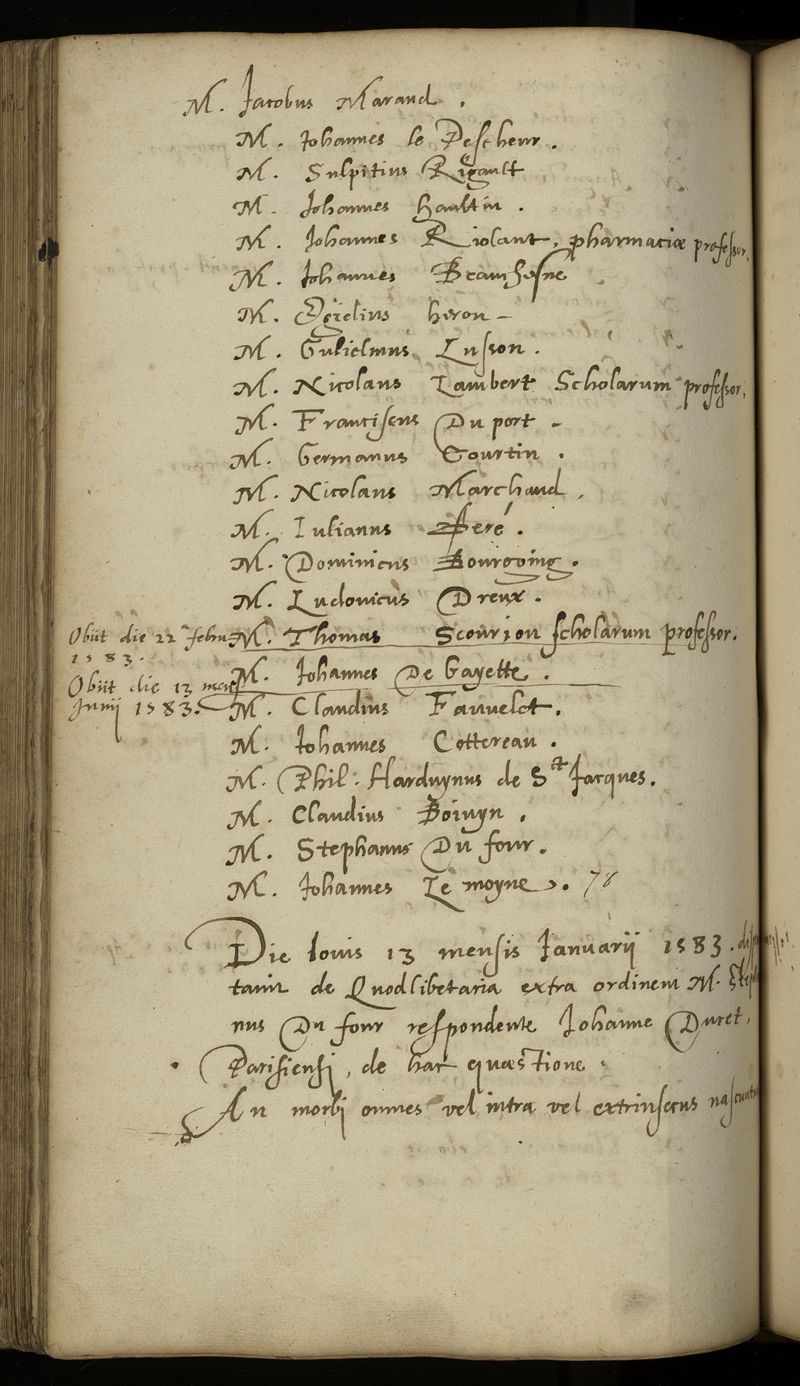 M. Jacobus Marand.
M. Johannes le Pescheur.
M. Sulpitius Rigault
M. Johannes Haultin.
M. Johannes Riolant, pharmaciæ professor,
M. Johannes
M. Heron
M. Gulielmus Lusson.
M. Nicolaus Lambert Scholarum professor,
M. Franciscus Du port
M. Germanus Courtin.
M. Nicolaus Marchand,
M. Iulianus Peré.
M. Dominicus Bourgoing.
M. Ludovicus Dreux.
Obiit die 22 febru M. Thomas Scourjon scholarum professor.
1583.
M. Johannes De Gayette.
Obiit die 13 mensis
Junij 1583. M. Claudius Fauvelet.
M. Johannes Cottereau.
M. Phil. Harduynus de St Jacques.
M. Claudius Boivyn.
M. Stephanus Du four.
M. Johannes Le moyne. 78
Die Iovis 13 mensis Januarij 1583.
tavit de Quodlibetaria extra ordinem M. Steph
nus Du four respondente Johanne Duret,
Parisiensi, de hac quæstione.
An morbi omnes vel intra vel extrinsecus nascuntur